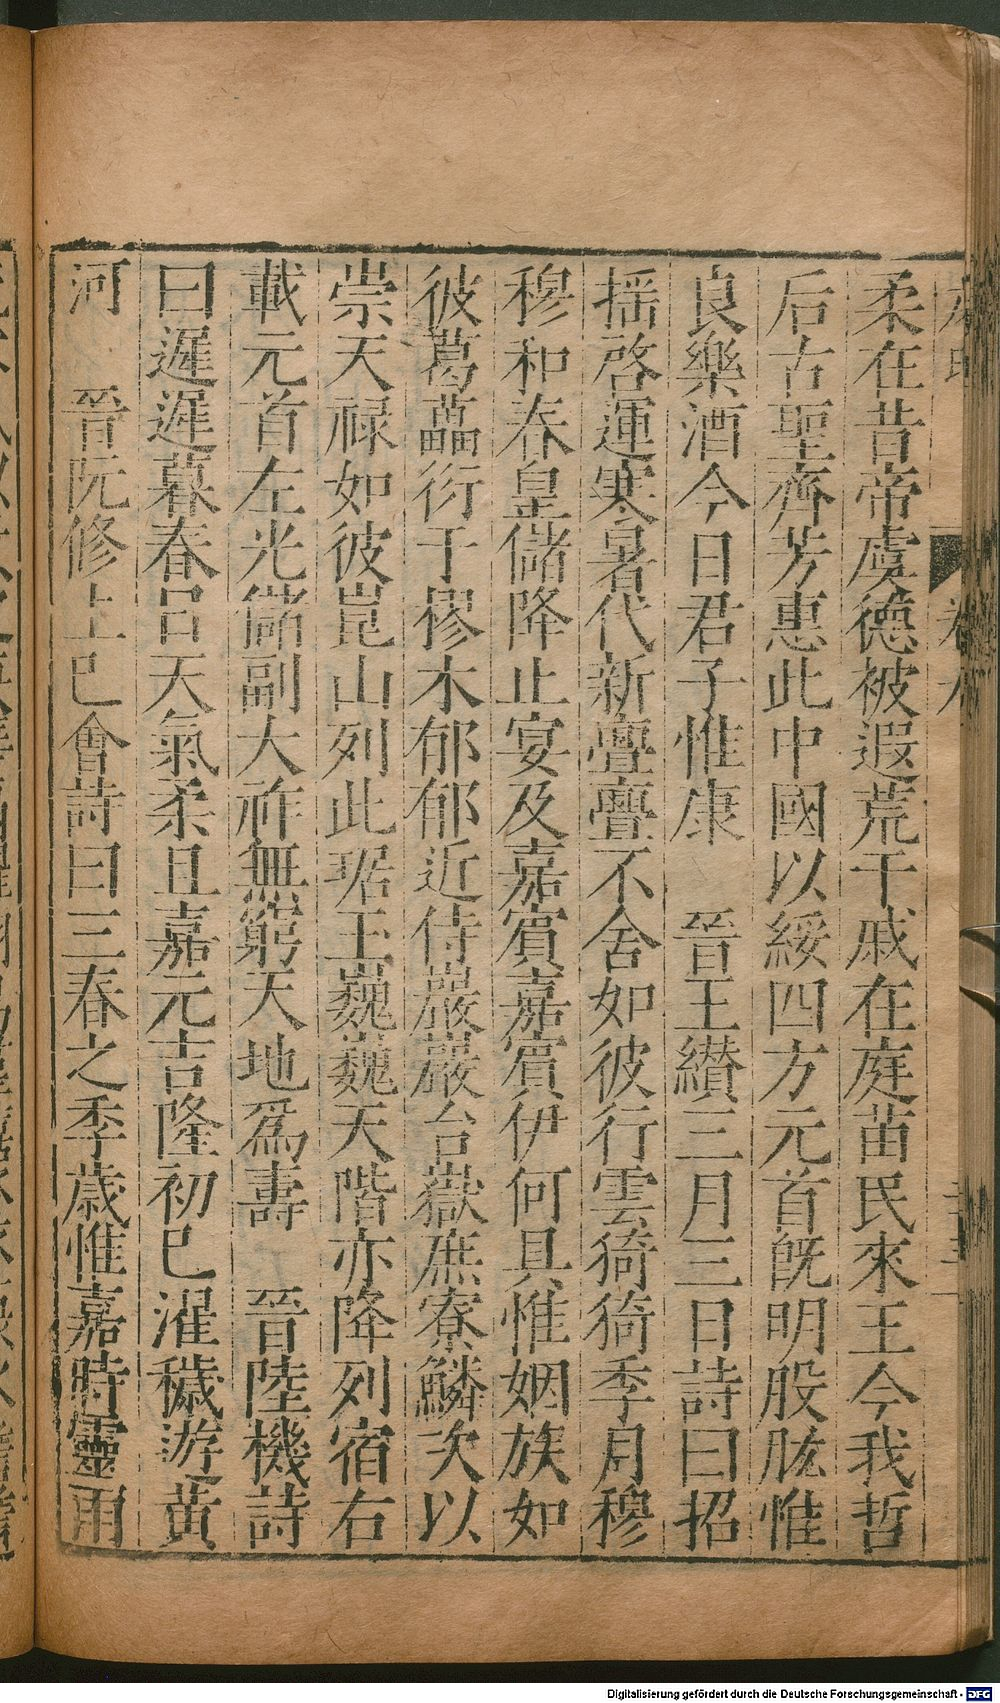 柔在昔帝虞德被遐荒干戚在庭苗民來王今我哲
后古聖齊芳惠此中國以綏四方元首旣明股肱惟
良樂酒今日君子惟康　晉王纉三月三日詩曰招
揺啓運寒暑代新亹亹不舍如彼行雲猗猗季月穆
穆和春皇儲降止宴及嘉賓嘉賓伊何具惟姻族如
彼葛藟衍于樛木郁郁近侍巖巖台嶽庶寮鱗次以
崇天禄如彼崑山列此琚玉巍巍天階亦降列宿右
載元首左光儲副大祚無窮天地爲壽　晉陸機詩
曰遲遲暮春日天氣柔且嘉元吉隆初巳濯穢游黃
河　晉阮修上巳會詩曰三春之季歲惟嘉時靈雨
Digitalisierung gefördert durch die Deutsche Forschungsgemeinschaft - DFG